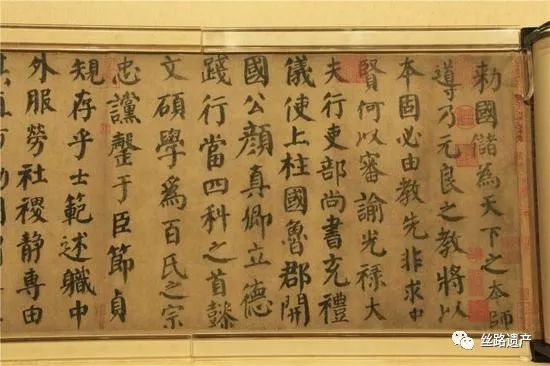 勅國儲為天下之本師
導乃元良之教將以
本固必由教先非求中
賢何以審諭光祿大
夫行吏部尚書充禮
儀使上柱國魯郡開
國公顏真卿立德
踐行當四科之首懿
文碩學為百氏之宗
忠讜罄于臣節貞
規存乎士範述職中
外服勞社稷靜專由
丝路遗产